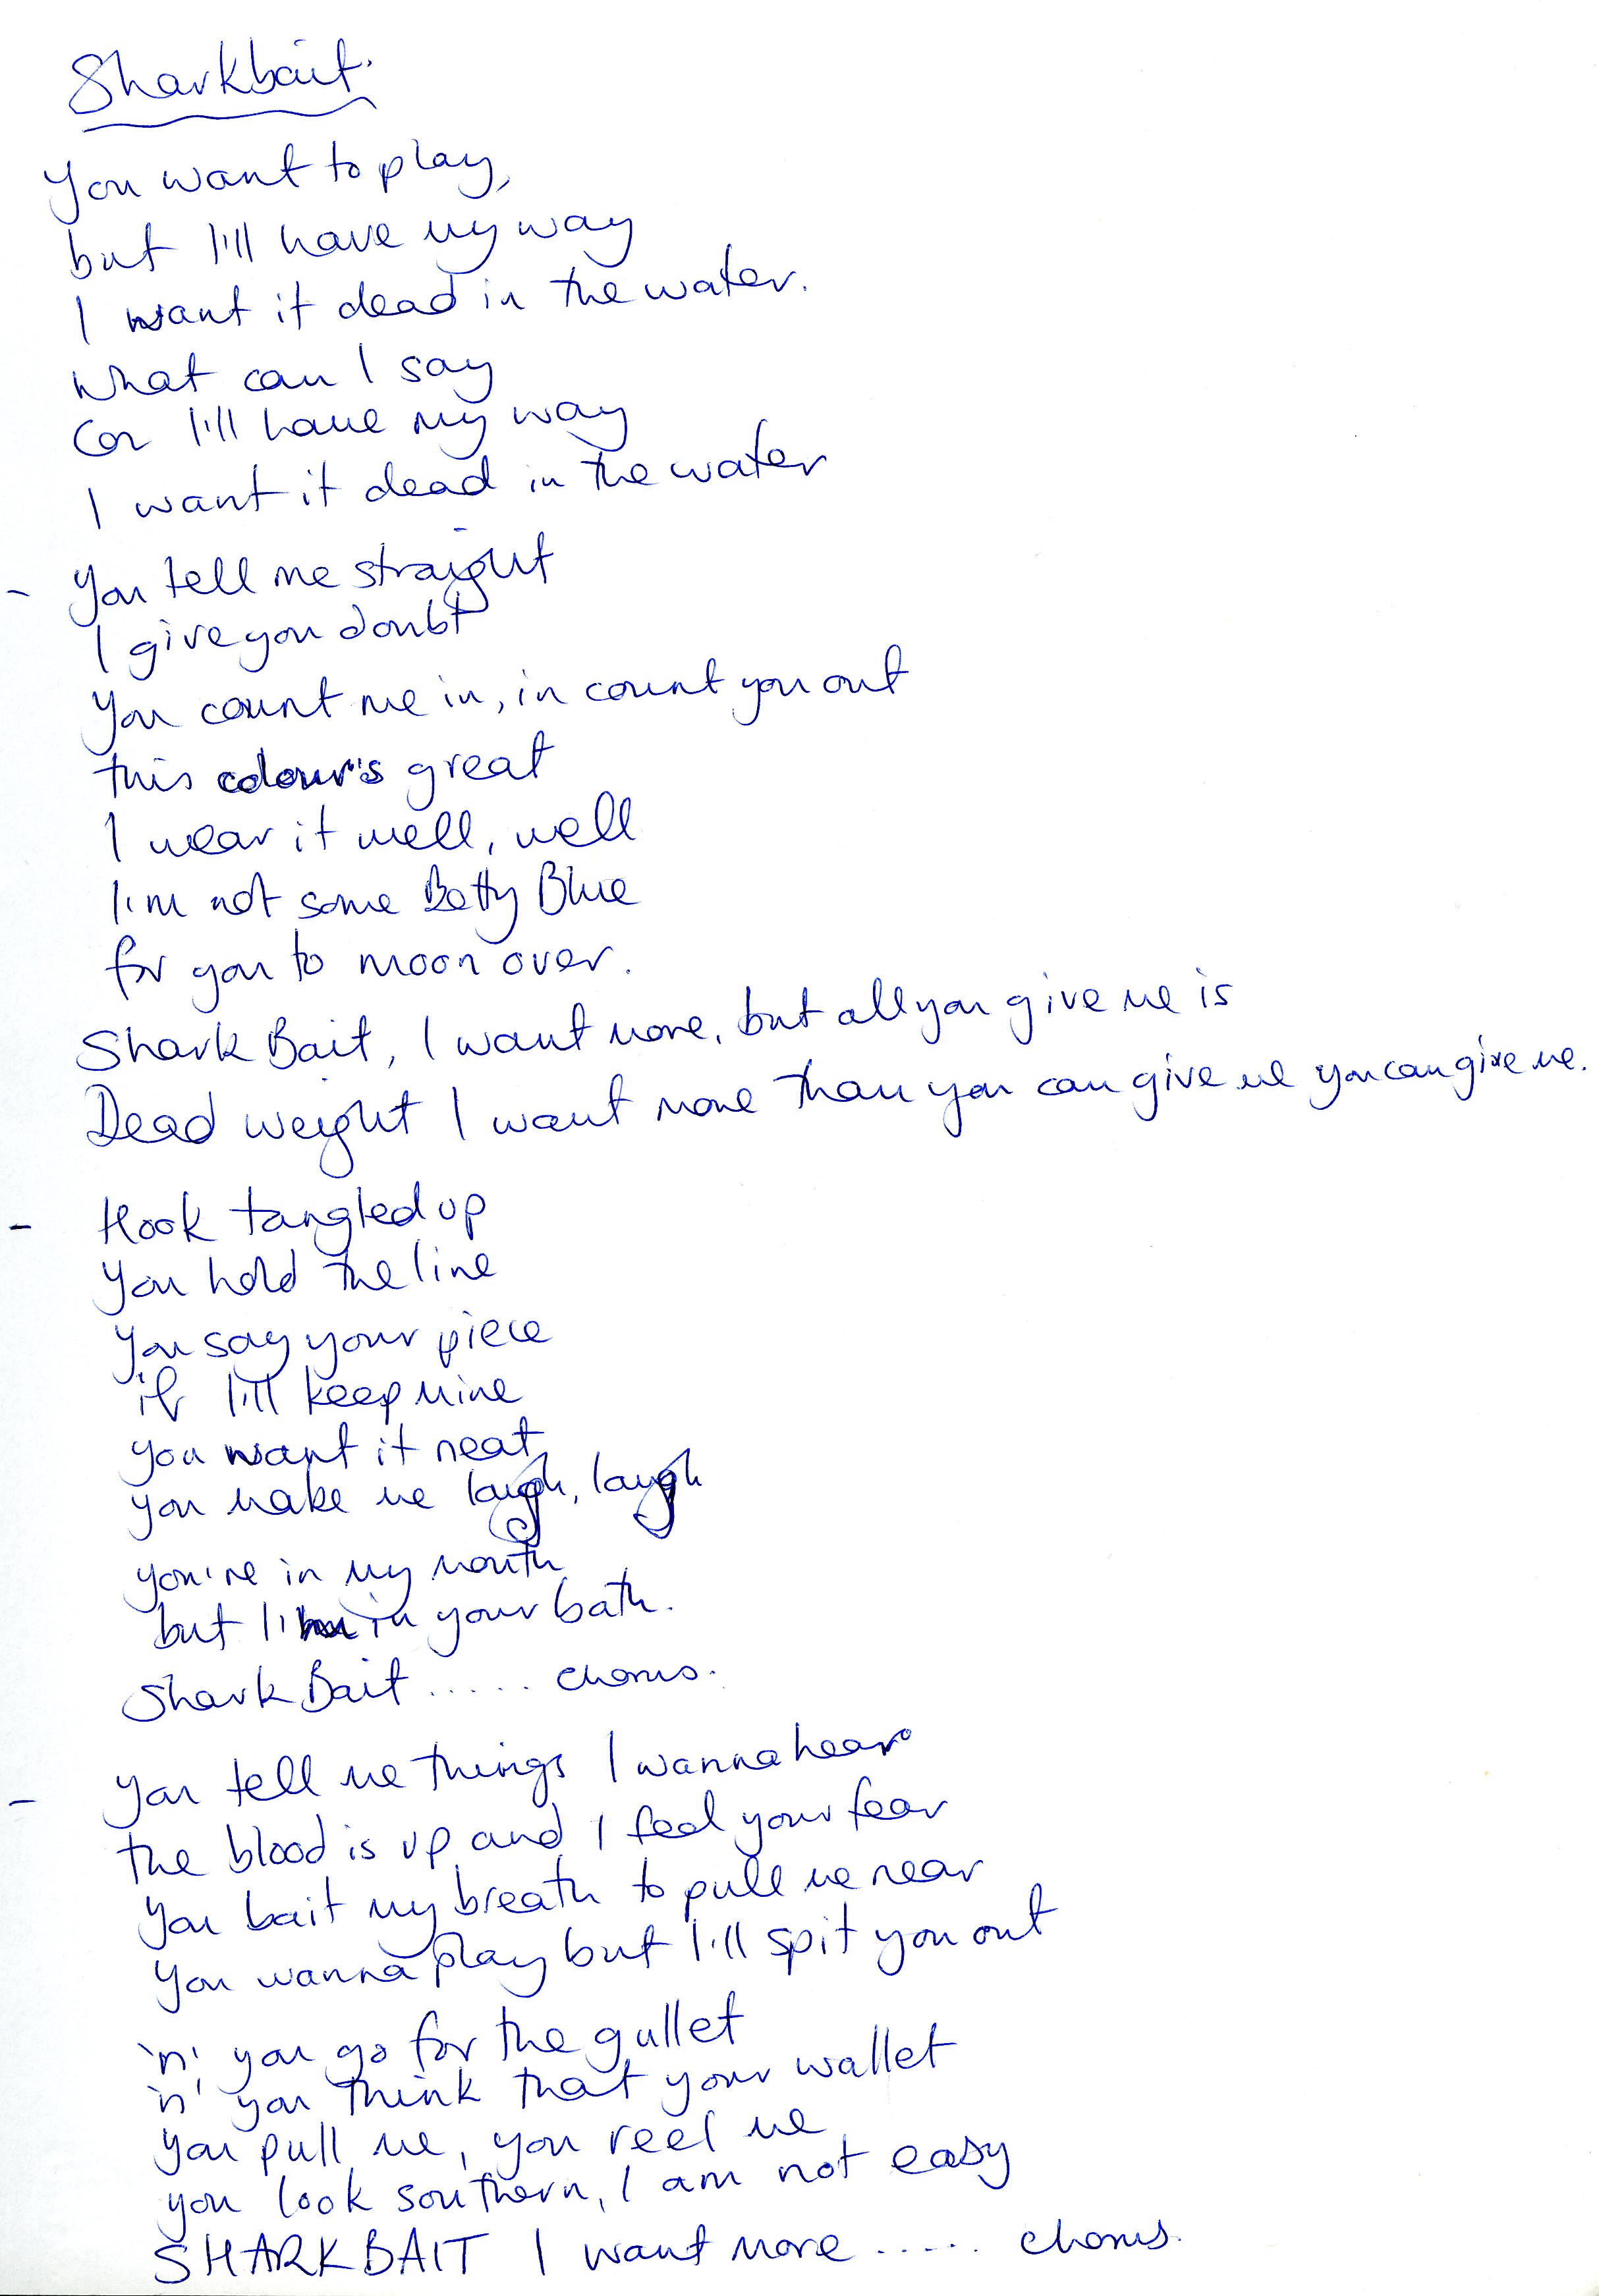 Sharkbait.
You want to play,
but I'll have my way
I want it dead in the water.
What can I say
Cos I'll have my way
I want it dead in the water
- You tell me straight
I give you doubt
You count me in, in count you out
this colour's great
I wear it well, well
I'm not some Betty Blue
for you to moon over.
Shark Bait, I want more, but all you give me is
Dead weight I want more than you can give me you can give me.
- Hook tangled up
You hold the line
You say your piece
if I'll keep mine
you want it neat
you make me laugh, laugh
you're in my mouth
but I'm in your bath.
Shark Bait ...... chorus.
- You tell me things I wanna hear
the blood is up and I feel your fear
You bait my breath to pull me near
You wanna play but I'll spit you out
'n' you go for the gullet
'n' you think that your wallet
You pull me, you reel me
you look southern, I am not easy
SHARKBAIT I want more ..... chorus.